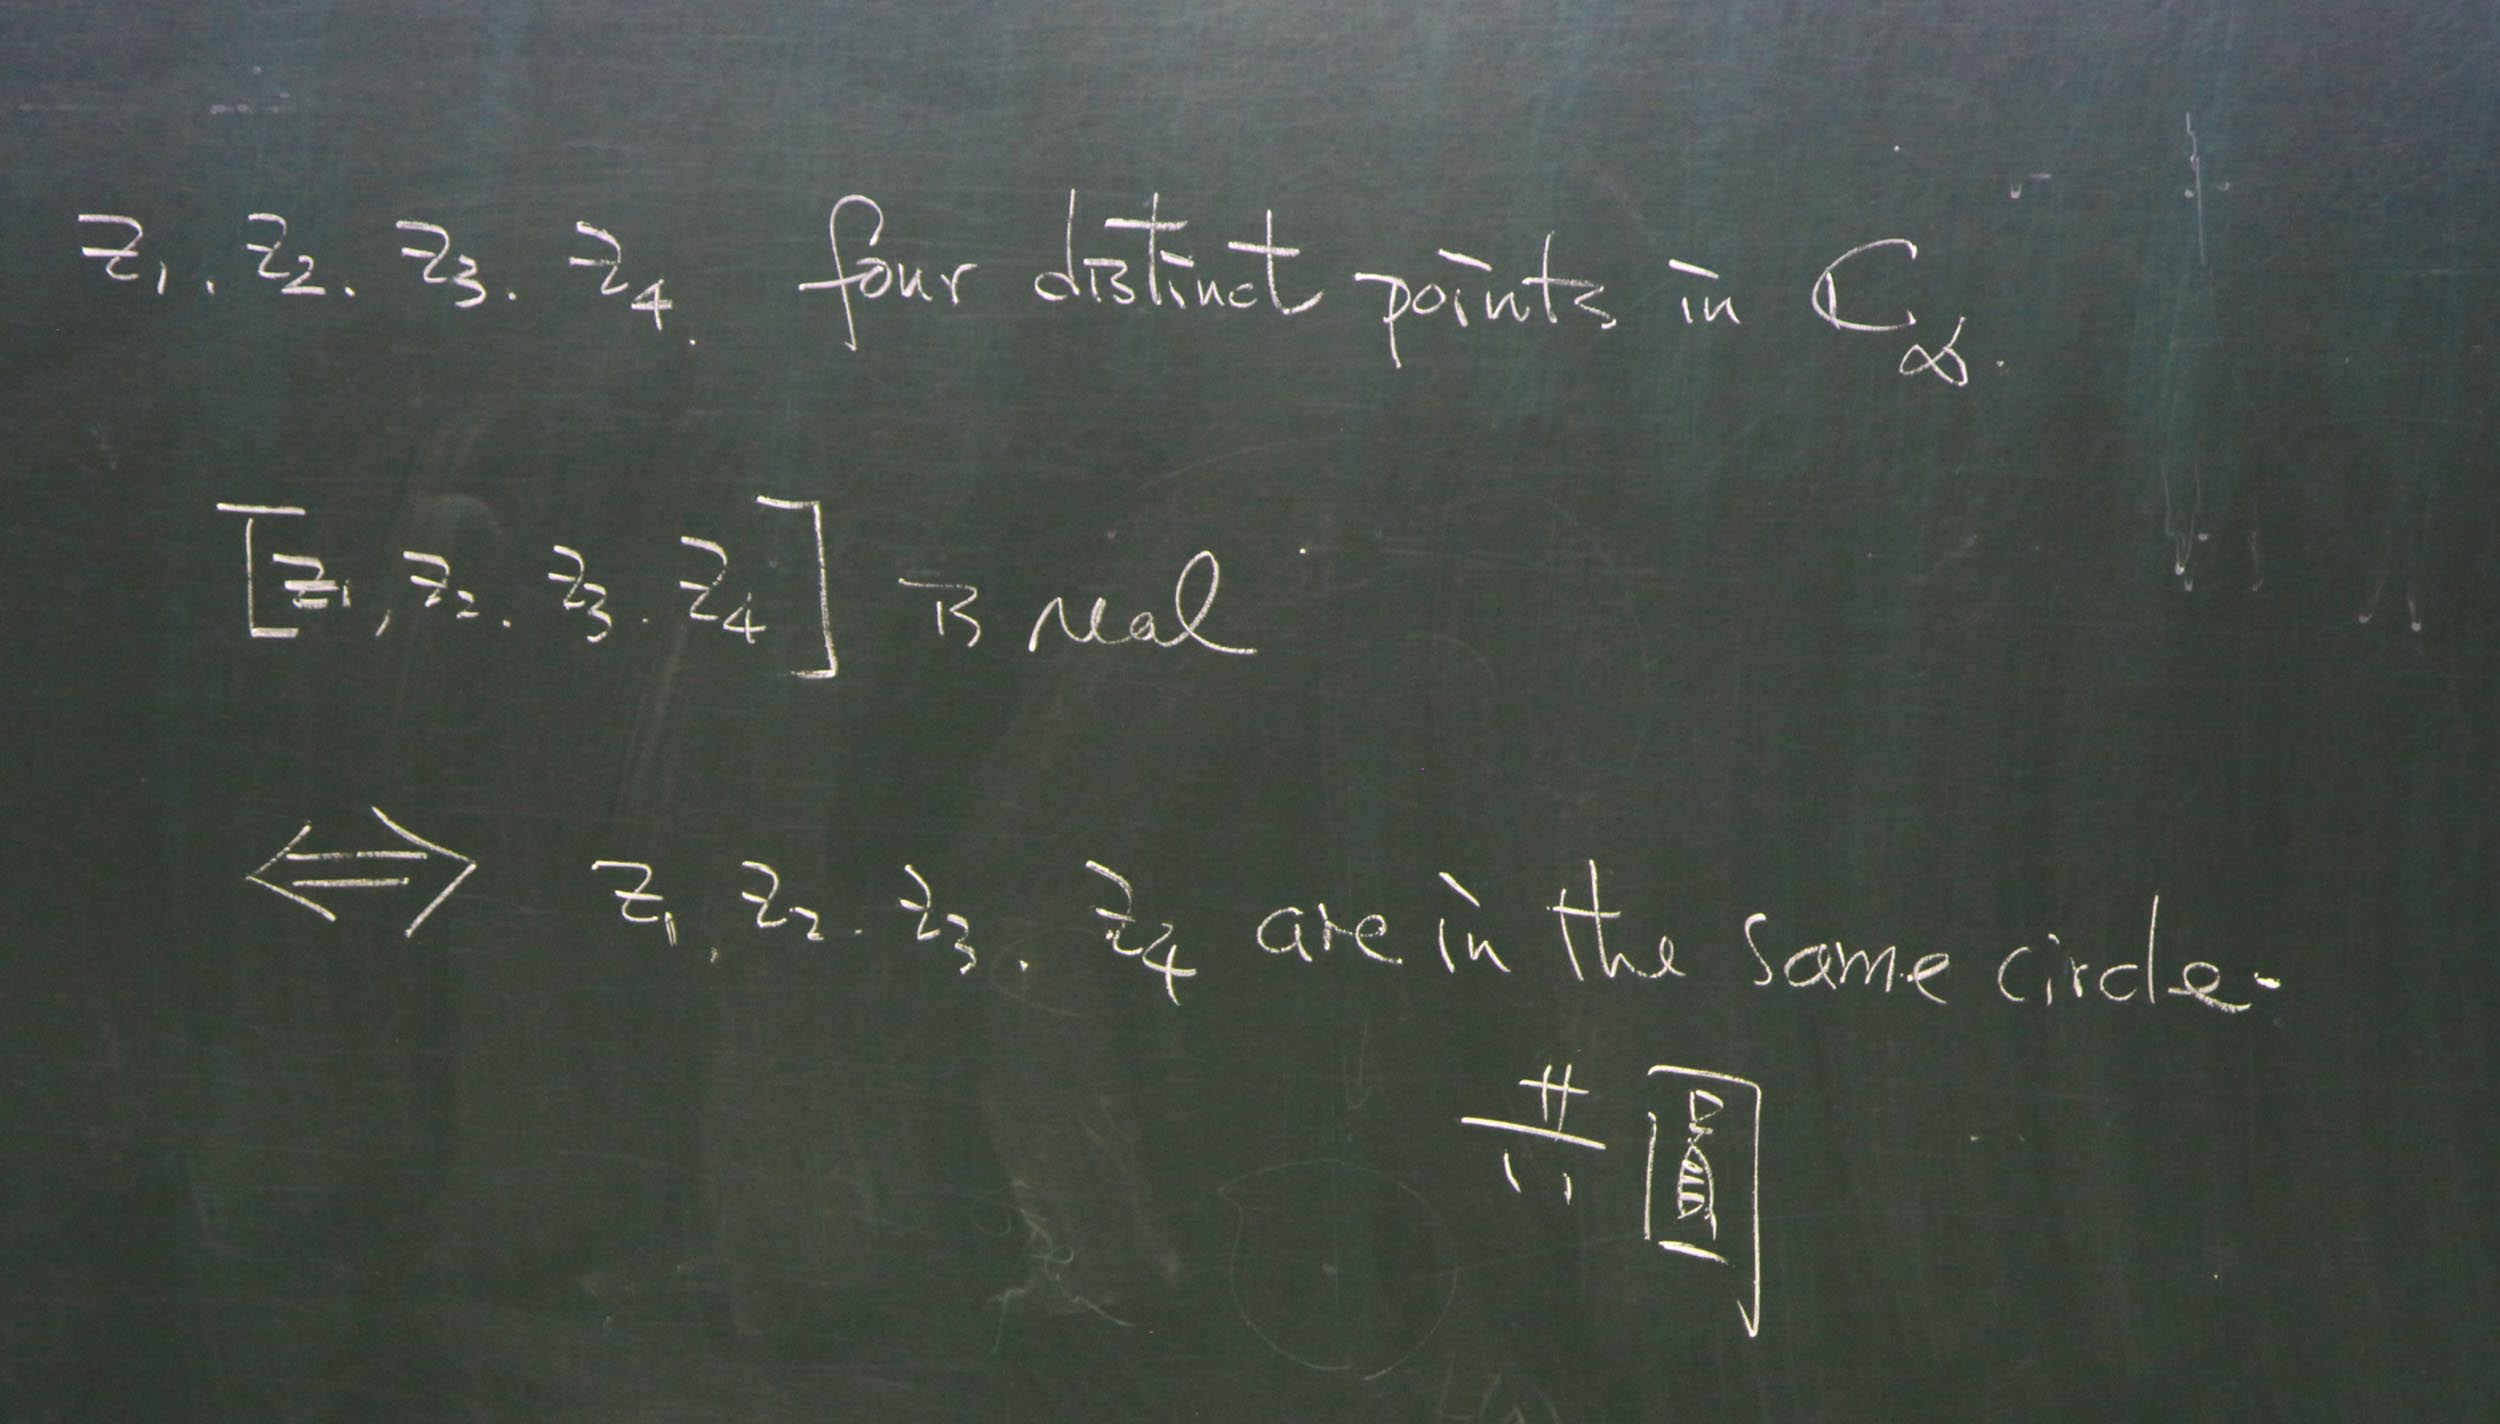 z₁, z₂, z₃, z₄, four distinct points in ℂ∞.
[z₁, z₂, z₃, z₄] is real
⟺ z₁, z₂, z₃, z₄ are in the same circle.
共圓